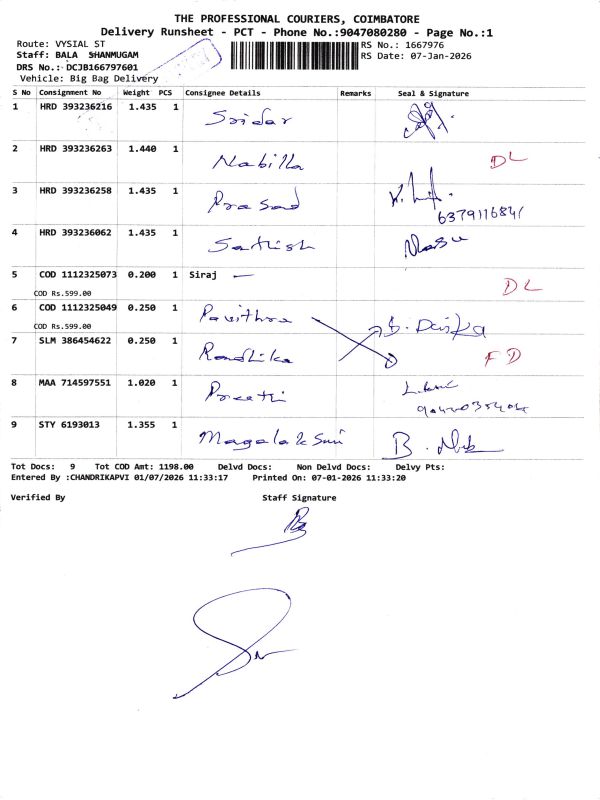 THE PROFESSIONAL COURIERS, COIMBATORE
Delivery Runsheet - PCT - Phone No.:9047080280 - Page No.:1
Route: VYSIAL ST
RS No.: 1667976
Staff: BALA SHANMUGAM
RS Date: 07-Jan-2026
DRS No.: DCJB166797601
Vehicle: Big Bag Delivery
S No Consignment No Weight PCS Consignee Details Remarks Seal & Signature
1 HRD 393236216 1.435 1 Sridar
2 HRD 393236263 1.440 1 Nabilla DL
3 HRD 393236258 1.435 1 Prasad
6379116841
4 HRD 393236062 1.435 1 Sathish
5 COD 1112325073 0.200 1 Siraj — DL
COD Rs.599.00
6 COD 1112325049 0.250 1 Pavithra
COD Rs.599.00
7 SLM 386454622 0.250 1 Randhika FD
8 MAA 714597551 1.020 1 Preethi
9 STY 6193013 1.355 1
Tot Docs: 9 Tot COD Amt: 1198.00 Delvd Docs: Non Delvd Docs: Delvy Pts:
Entered By :CHANDRIKAPVI 01/07/2026 11:33:17 Printed On: 07-01-2026 11:33:20
Verified By Staff Signature